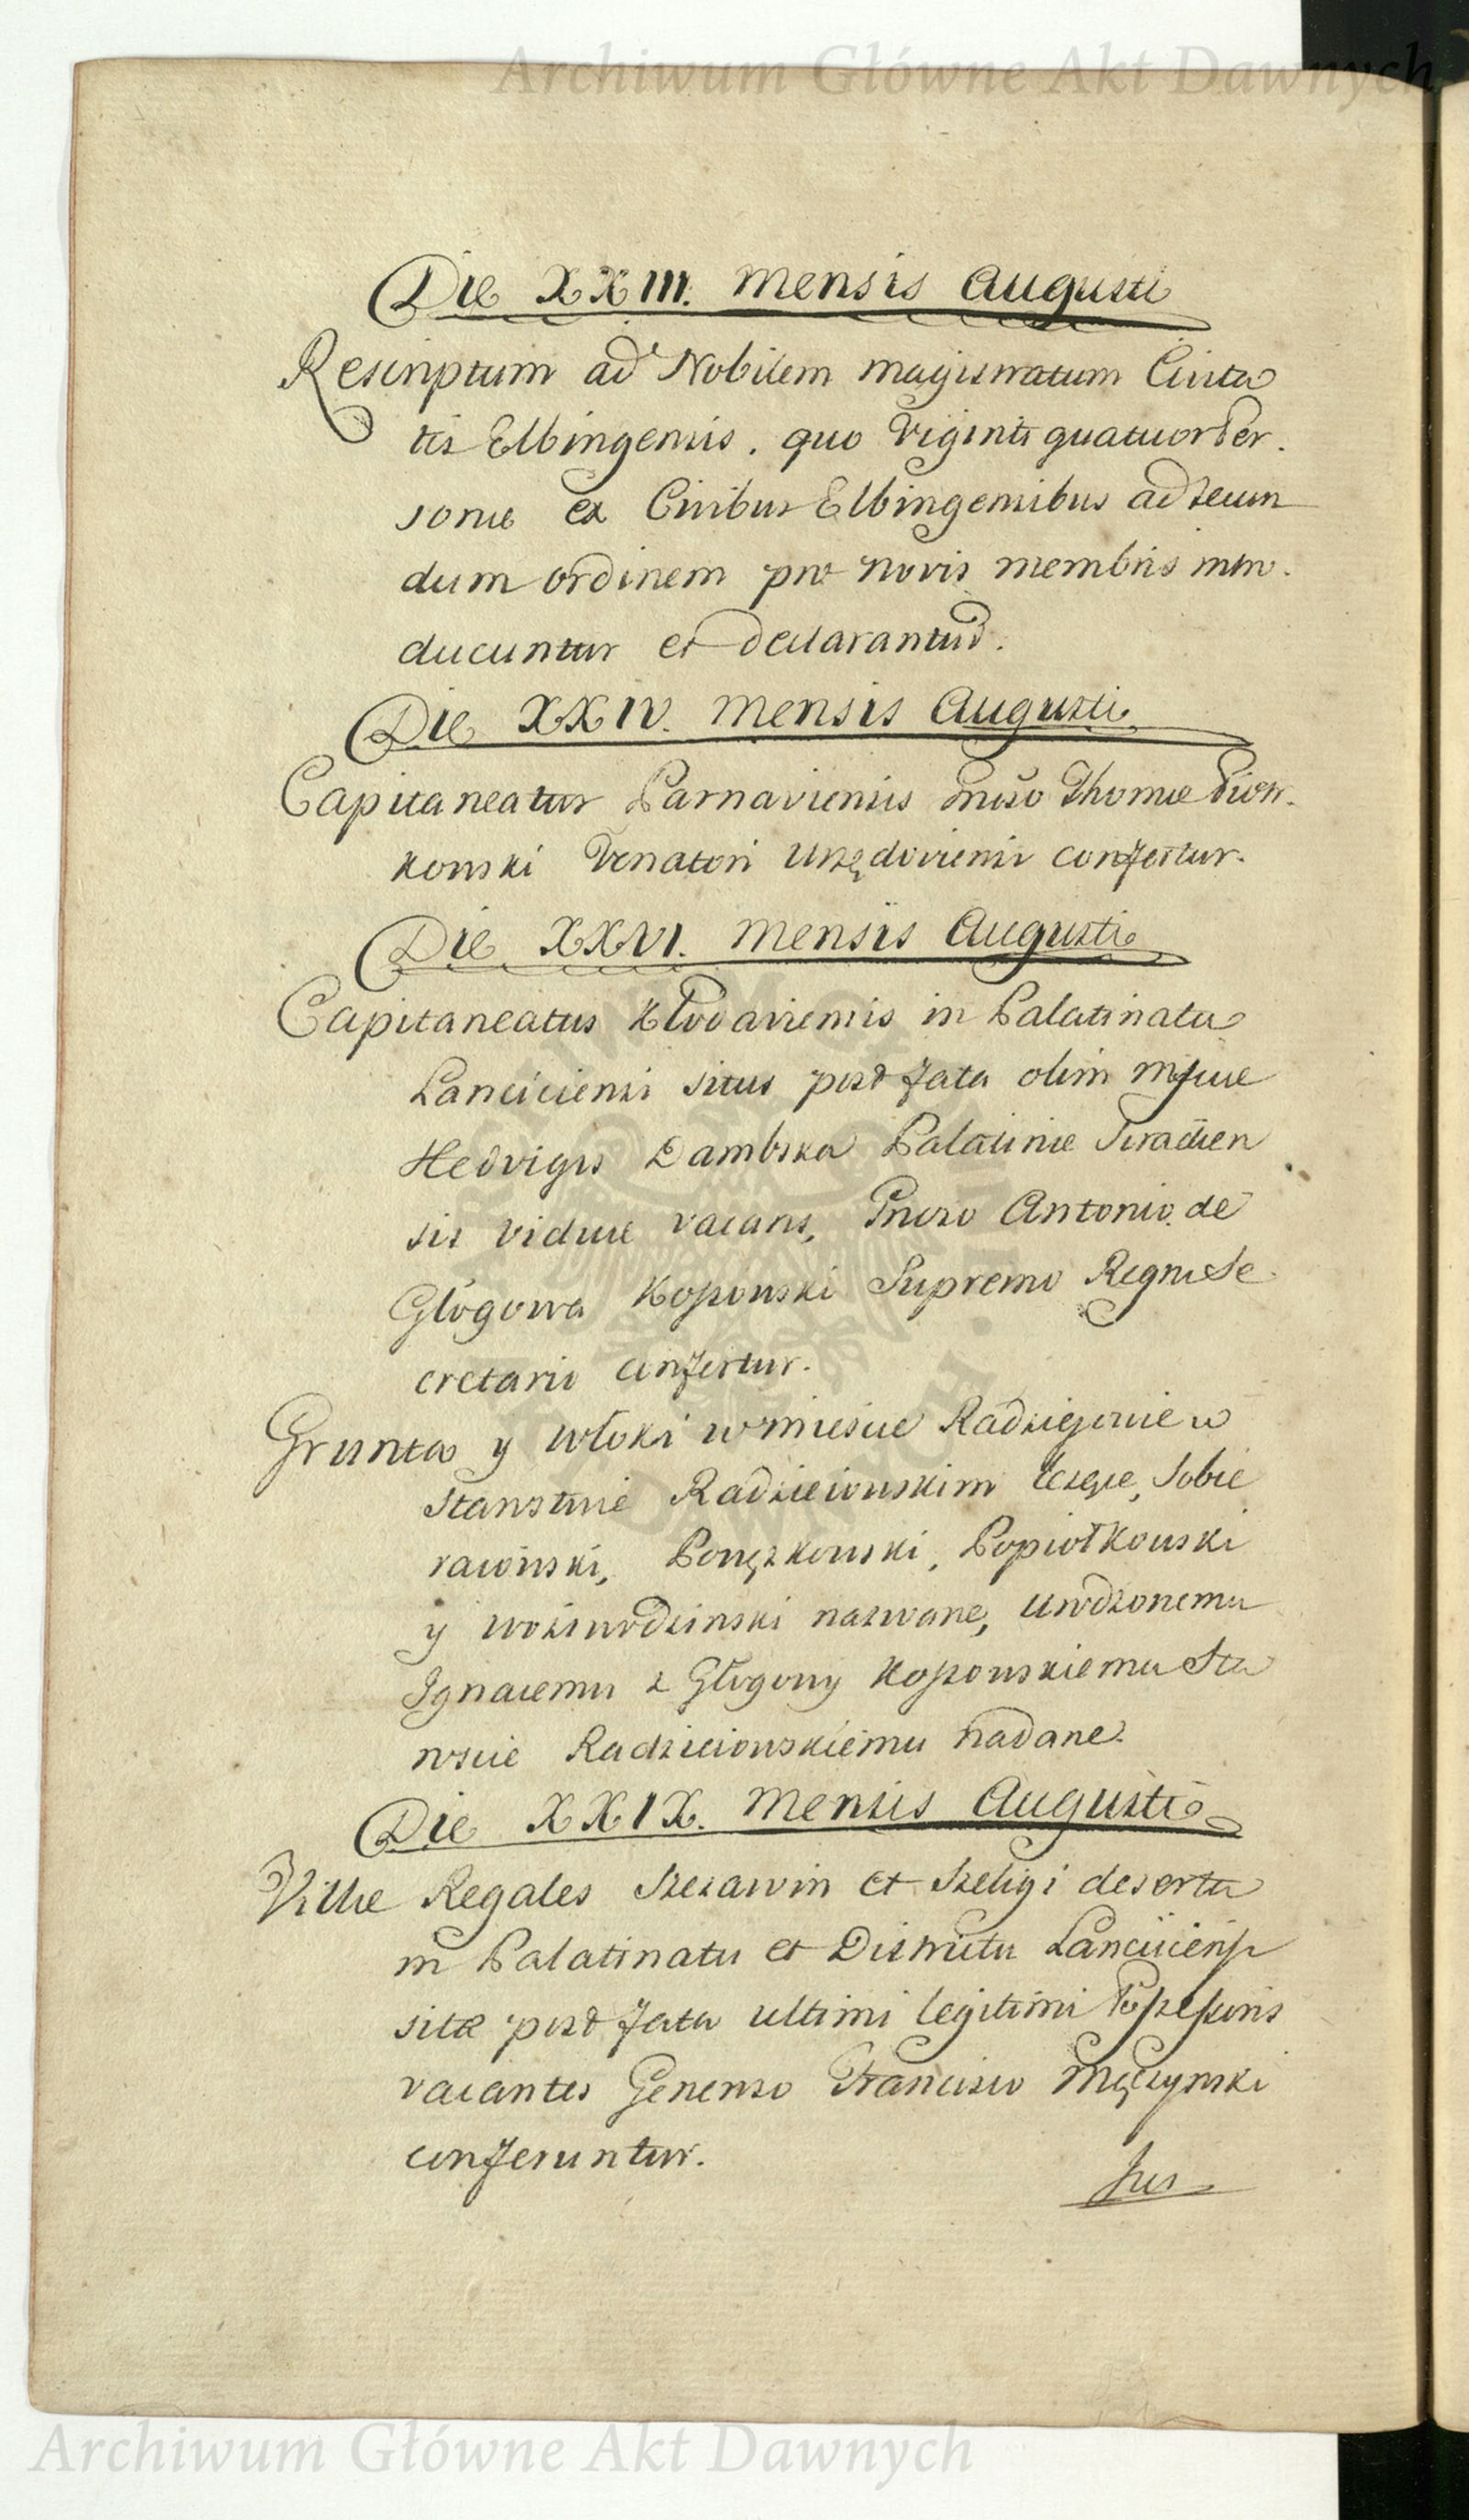 Archiwum Główne Akt Dawnych
Die XXIII. Mensis Augusti
Rescriptum ad Nobilem Magistratum Civita
tis Elbingensis. quo Viginti quatuor Per.
sonæ ex Civibus Elbingensibus ad secun
dum ordinem pro novis membris intro.
ducuntur et declarantur.
Die XXIV. Mensis Augusti
Capitaneatus Parnaviensis Gnoso Thomæ Pion.
kowski Venatori Urzędoviensi confertur.
Die XXVI. Mensis Augusti
Capitaneatus Kłodaviensis in Palatinatu
Lanciciensi situs post fata olim Mgficæ
Hedvigis Dambska Palatinæ Siradien
sis viduæ vacans, Gnoso Antonio de
Głogowa Kossowski Supremo Regni Se
cretario confertur.
Grunta y włoki w mieście Radzieiowie w
Starostwie Radzieiowskim
rawinski, Popiołkowski
y nazwane, urodzonemu
Ignacemu z Głogowy Kossowskiemu Sta
roscie Radzieiowskiemu nadane.
Die XXIX. Mensis Augusti
Villæ Regales Szczawin et Szeligi deserta
in Palatinatu et Districtu Lanciciensi
sitæ post fata ultimi legitimi Possessoris
vacantes Generoso Francisco Męczynski
conferuntur.
Jus
Archiwum Główne Akt Dawnych